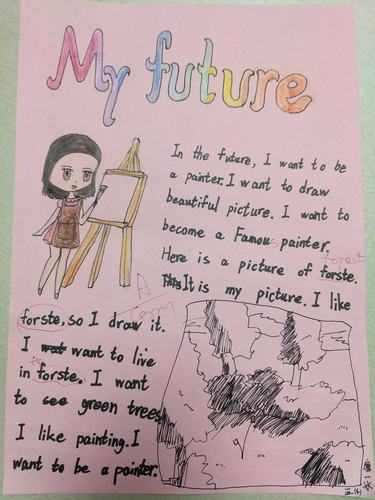 My future
In the future, I want to be
a painter. I want to draw
beautiful picture. I want to
become a Famous painter.
Here is a picture of forste.
forest
It is my picture. I like
A
forste, so I draw it.
I want to live
in forste. I want
to see green trees
I like painting. I
want to be a painter.